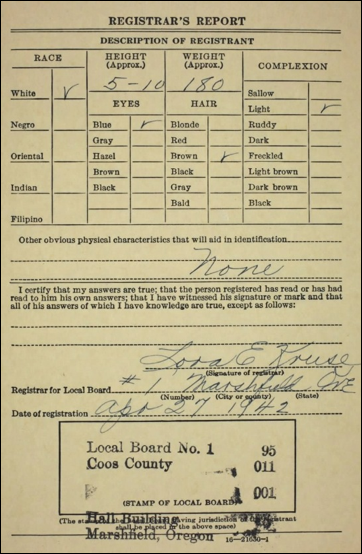 REGISTRAR'S REPORT
DESCRIPTION OF REGISTRANT
RACE HEIGHT (Approx.) WEIGHT (Approx.) COMPLEXION
5-10 180
White ✓ Sallow
EYES HAIR Light ✓
Negro Blue ✓ Blonde Ruddy
Gray Red Dark
Oriental Hazel Brown ✓ Freckled
Brown Black Light brown
Indian Black Gray Dark brown
Bald Black
Filipino
Other obvious physical characteristics that will aid in identification
None
I certify that my answers are true; that the person registered has read or has had
read to him his own answers; that I have witnessed his signature or mark and that
all of his answers of which I have knowledge are true, except as follows:
Lora E Kruse
(Signature of registrar)
Registrar for Local Board #1 Marshfield Ore
(Number) (City or county) (State)
Date of registration Apr 27 1942
Local Board No. 1 95
Coos County 011
001
(STAMP OF LOCAL BOARD)
(The stamp of the having jurisdiction of the registrant
shall be placed in the above space)
Hall Building
Marshfield, Oregon 16—21630-1